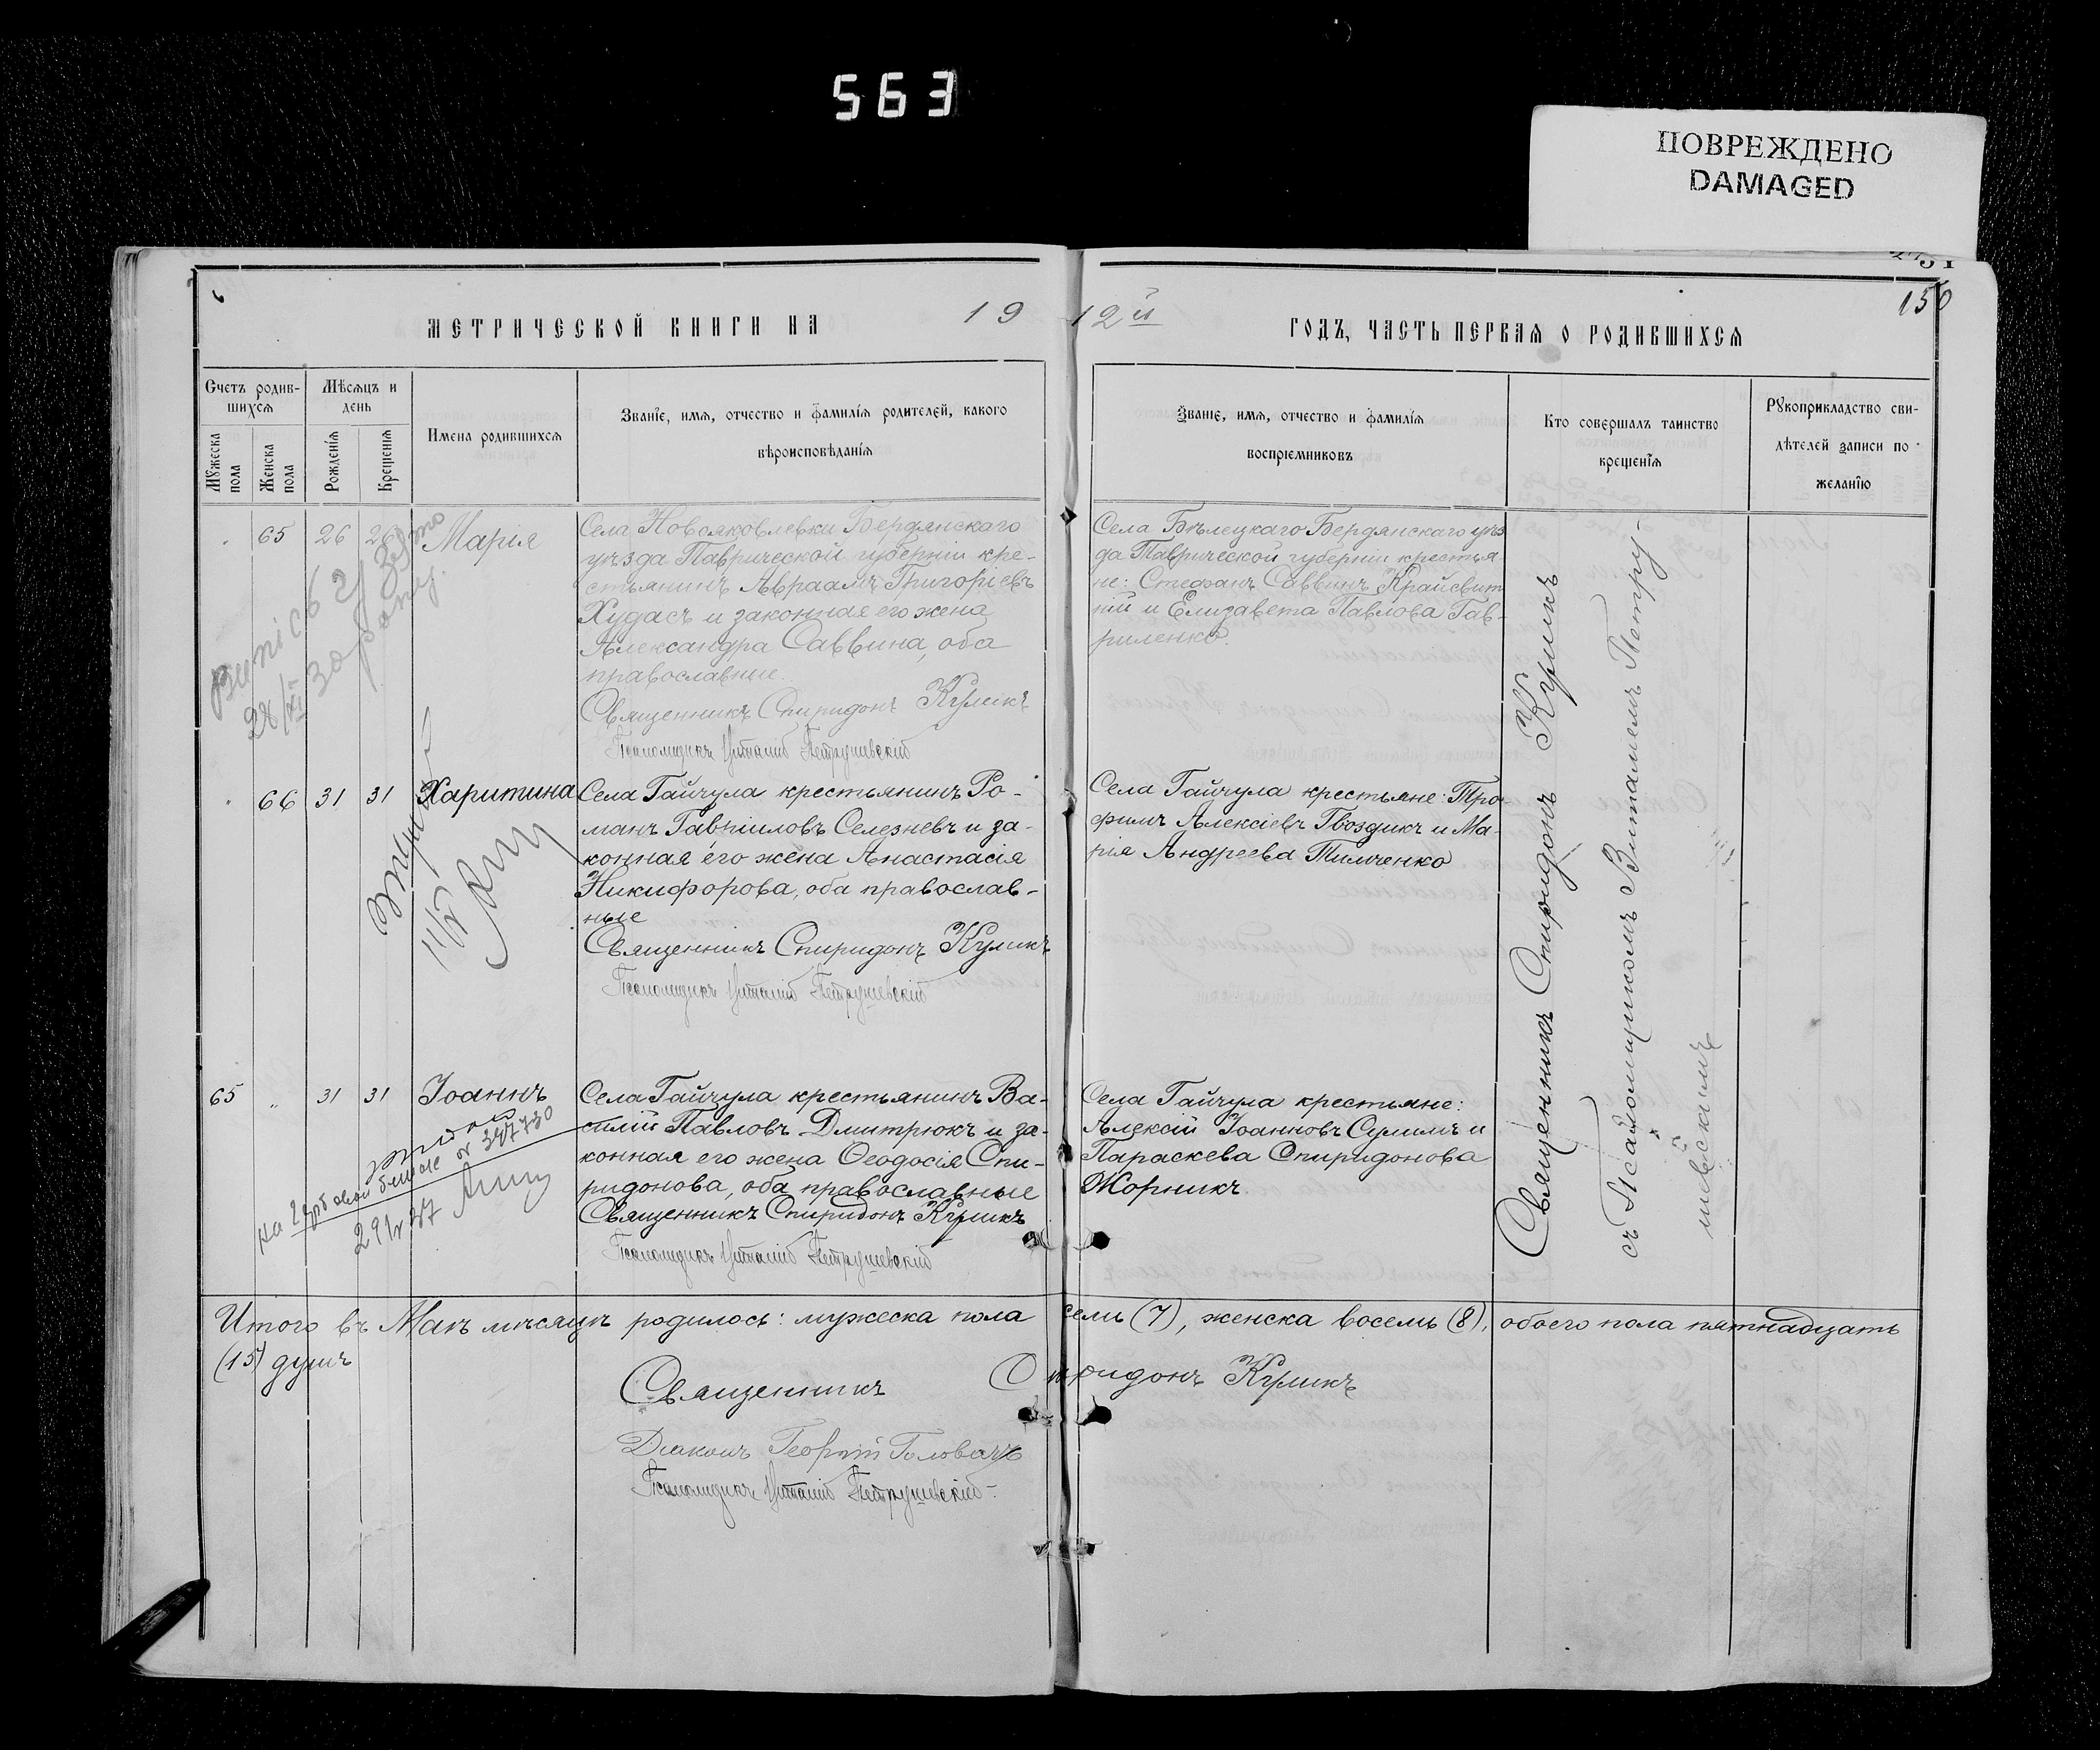 563
ПОВРЕЖДЕНО
DAMAGED
150
МЕТРИЧЕСКОЙ КНИГИ НА 19
12й ГОДЪ, ЧАСТЬ ПЕРВАЯ О РОДИВШИХСЯ
Счетъ родив-
шихся
Мужеска пола
Женска пола
Мѣсяцъ и
день
Рожденія
Крещенія
Имена родившихся
Званіе, имя, отчество и фамилія родителей, какого
вѣроисповѣданія
Званіе, имя, отчество и фамилія
воспріемниковъ
Кто совершалъ таинство
крещенія
Рукоприкладство сви-
дѣтелей записи по
желанію
65 26 26 Марія
Села Новояковлевки Бердянскаго
уѣзда Таврической губерніи кре-
стьянинъ Авраамъ Григоріевъ
Худасъ и законная его жена
Александра Саввина, оба
православные.
Священникъ Спиридонъ Куликъ
Псаломщикъ Виталій Петрушевскій
Села Бѣлецкаго Бердянскаго уѣз
да Таврической губерніи крестья-
не: Стефанъ Саввинъ Крайсвит
ній и Елизавета Павлова Гав-
риленко.
66 31 31 Харитина
Села Гайчула крестьянинъ Ро-
манъ Гавріиловъ Селезневъ и за-
конная его жена Анастасія
Никифорова, оба православ-
ные
Священникъ Спиридонъ Куликъ
Псаломщикъ Виталій Петрушевскій
Села Гайчула крестьяне: Тро-
фимъ Алексіевъ Гвоздикъ и Ма-
рія Андреева Тимченко
65 " 31 31 Іоаннъ
Села Гайчула крестьянинъ Ва-
силій Павловъ Дмитрюкъ и за-
конная его жена Ѳеодосія Спи-
ридонова, оба православные
Священникъ Спиридонъ Куликъ
Псаломщикъ Виталій Петрушевскій
Села Гайчула крестьяне:
Алексій Іоанновъ Сулимъ и
Параскева Спиридонова
Жорникъ
Священникъ Спиридонъ Куликъ
съ Псаломщикомъ Виталіемъ Петру-
шевскимъ
Итого въ Маѣ мѣсяцѣ родилось: мужеска пола семь (7), женска восемь (8), обоего пола пятнадцать
(15) душъ
Священникъ Спиридонъ Куликъ
Діаконъ Георгій Головачъ
Псаломщикъ Виталій Петрушевскій